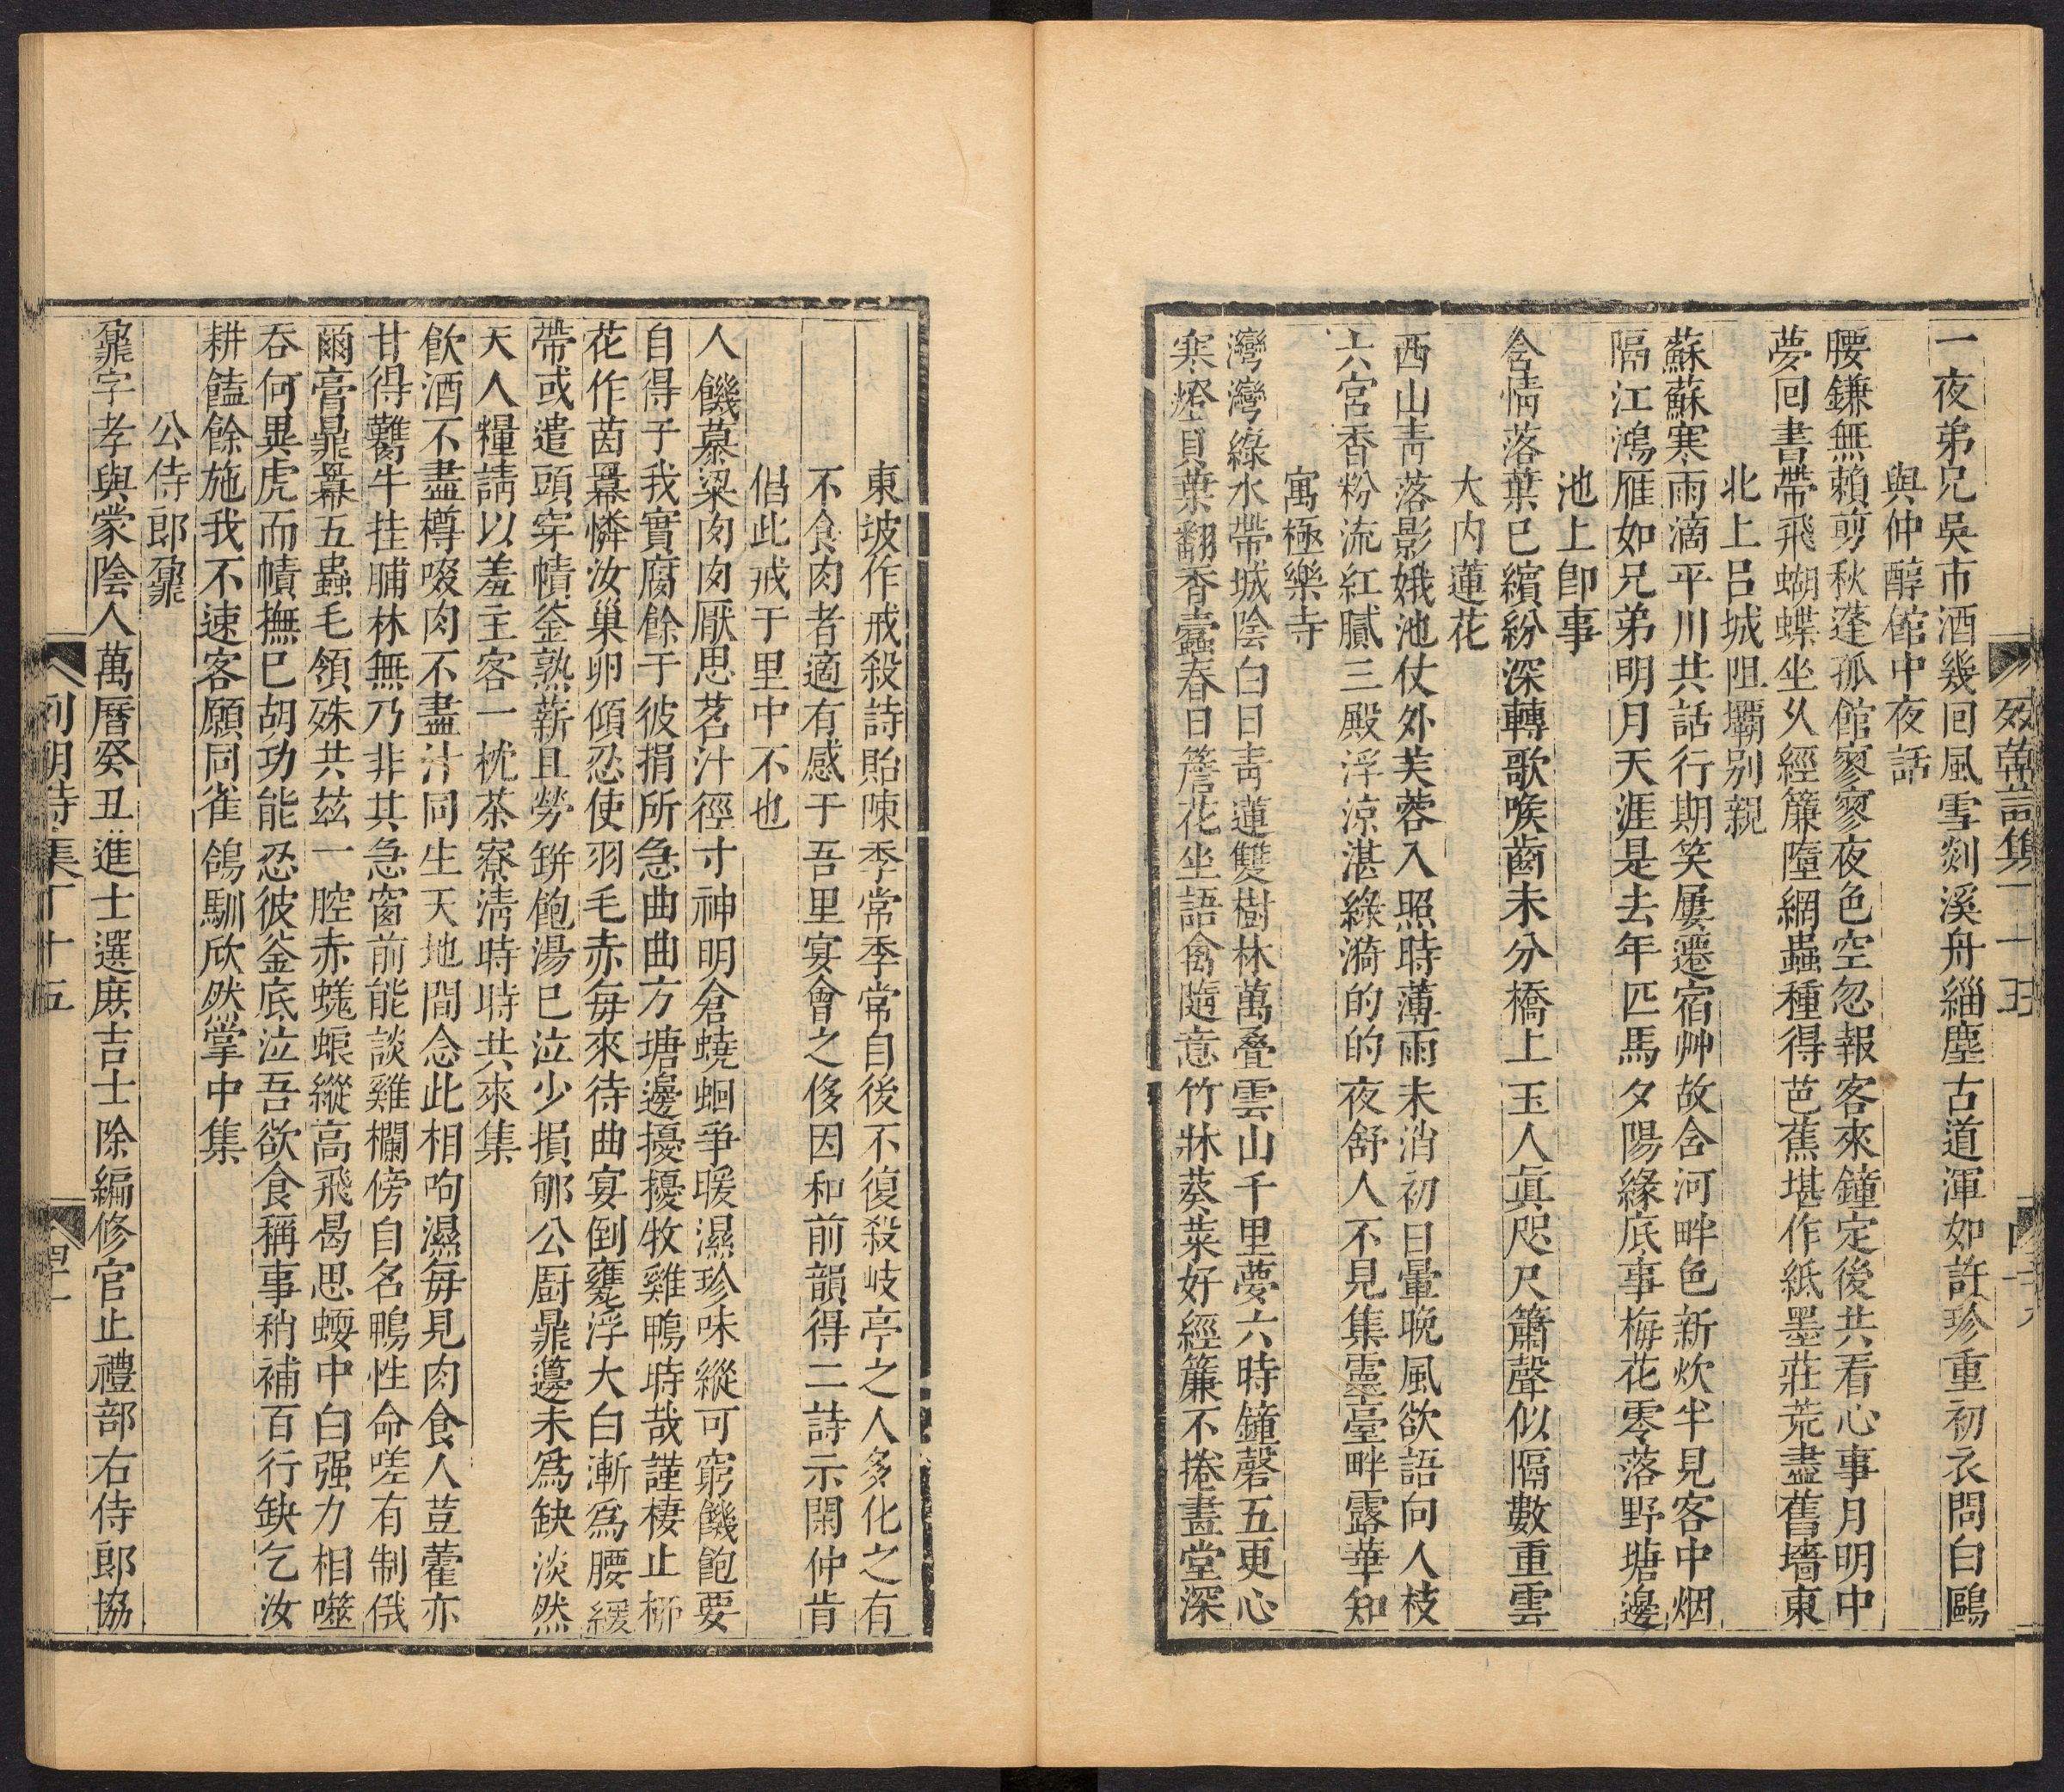 一夜弟兄吳市酒幾回風雪剡溪舟緇塵古道渾如許珍重初衣問白鷗
與仲醇館中夜話
腰鎌無賴剪秋蓬孤館寥寥夜色空忽報客來鐘定後共看心事月明中
夢回書帶飛蝴蝶坐久經簾墮網蟲種得芭蕉堪作紙墨莊荒盡舊墻東
北上呂城阻壩别親
蘇蘇寒雨滴平川共話行期笑屢遷宿艸故含河畔色新炊半見客中烟
隔江鴻雁如兄弟明月天涯是去年匹馬夕陽緣底事梅花零落野塘邊
池上卽事
含情落葉已繽紛深轉歌喉齒未分橋上玉人眞咫尺簫聲似隔數重雲
大內蓮花
西山靑落影娥池仗外芙蓉入照時薄雨未消初日暈晚風欲語向人枝
六宮香粉流紅膩三殿浮涼湛綠漪的的夜舒人不見集靈臺畔露華知
寓極樂寺
灣灣綠水帶城陰白日靑蓮雙樹林萬疊雲山千里夢六時鐘磬五更心
寒燈貝葉翻香蠹春日簷花坐語禽隨意竹牀葵菜好經簾不捲晝堂深
東坡作戒殺詩貽陳季常季常自後不復殺岐亭之人多化之有
不食肉者適有感于吾里宴會之侈因和前韻得二詩示閑仲肯
倡此戒于里中不也
人饑慕粱肉肉厭思茗汁徑寸神明倉蟯蛔爭暖濕珍味縱可窮饑飽要
自得子我實腐餘于彼捐所急曲曲方塘邊擾擾牧雞鴨時哉謹棲止柳
花作茵羃憐汝巢卵傾忍使羽毛赤每來待曲宴倒甕浮大白漸爲腰緩
帶或遣頭穿幘釜熟薪且勞餅飽湯已泣少損郇公厨鼎籩未爲缺淡然
天人糧請以羞主客一枕茶寮淸時時共來集
飮酒不盡樽啜肉不盡汁同生天地間念此相呴濕每見肉食人荳藿亦
甘得鸛牛挂脯林無乃非其急窗前能談雞欄傍自名鴨性命嗟有制俄
爾膏鼎羃五蟲毛領殊共茲一腔赤螘蜋縱高飛曷思蝡中白强力相噬
吞何異虎而幘撫已胡功能忍彼釜底泣吾欲食稱事稍補百行缺乞汝
耕饁餘施我不速客願同雀鴿馴欣然掌中集
公侍郎鼐
鼐字孝與蒙陰人萬曆癸丑進士選庶吉士除編修官止禮部右侍郎協
列朝詩集丁十五